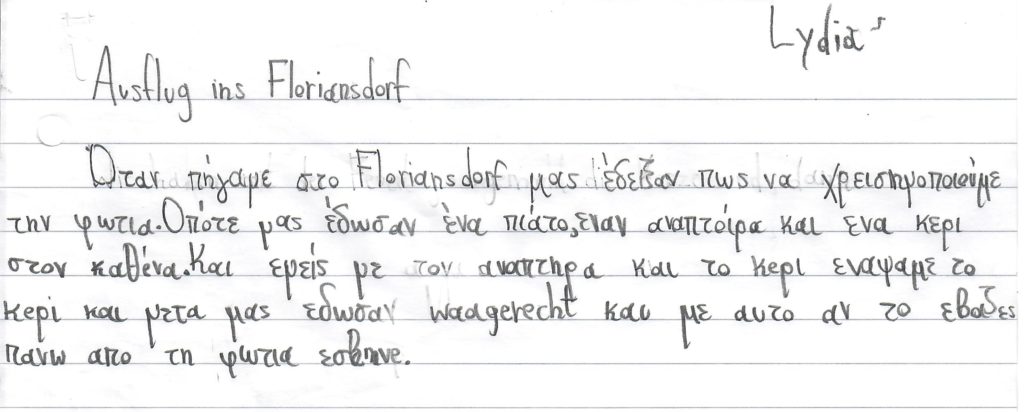 Lydia
Ausflug ins Floriansdorf
Ωταν πήγαμε στο Floriansdorf μας έδειξαν πως να χρεισημοποιούμε
την φωτια. Οπότε μας έδωσαν ένα πιάτο, εναν αναπτοίρα και ενα κερι
στον καθένα. Και εμείς με τον αναπτηρα και το κερι εναψαμε το
κερι και μετα μας εδωσαν waagerecht και με αυτο αν το εβαζες
πανω απο τη φωτια εσβηνε.